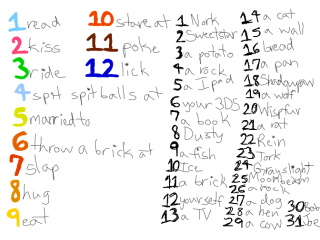 1 read
2 kiss
3 ride
4 spit spit balls at
5 married to
6 throw a brick at
7 slap
8 hug
9 eat
10 stare at
11 poke
12 lick
1 Nork
2 Sweetstar
3 a potato
4 a rock
5 a Ipid
6 your 3DS
7 a book
8 Dusty
9 a fish
10 Ice
11 a brick
12 yourself
13 a TV
14 a cat
15 a wall
16 bread
17 a pan
18 Shadowpaw
19 a wolf
20 Wispfur
21 a rat
22 Rein
23 Tork
24 Grayslight
25 Moonbeam
26 a rock
27 a dog
28 a hen
29 a cow
30 Bob
31 Joe